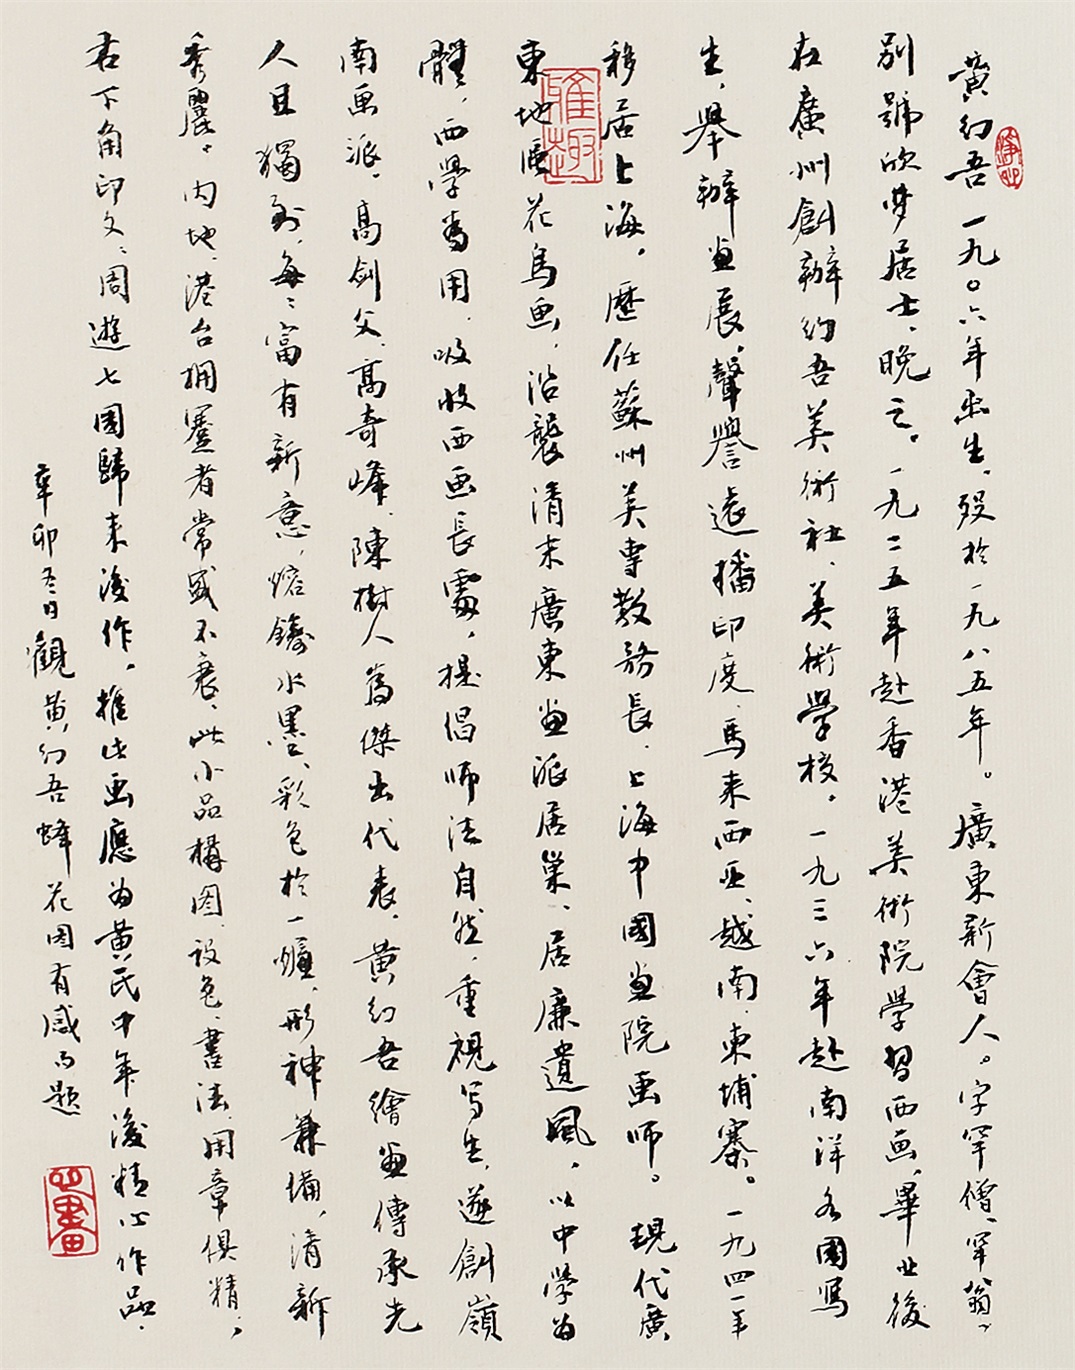 黃幻吾一九〇六年出生，歿於一九八五年。廣東新會人。字罕僧、罕翁，
別號欣夢居士，晚之。一九二五年赴香港美術院學習西画，畢业後
在廣州創辦幻吾美術社、美術學校，一九三六年赴南洋各國寫
生，舉辦畫展，聲譽遠播印度、馬来西亚、越南、東埔寨。一九四一年
移居上海，歷任蘇州美專教務長、上海中國畫院画师。現代廣
東地區花鳥画，沿襲清末廣東畫派居巢、居廉遺風，以中學为
體，西學為用，吸收西画長處，提倡师法自然，重視写生，遊創嶺
南画派，高劍父、高奇峰、陳樹人為傑出代表，黃幻吾繪畫傳承先
人且獨到，每：富有新意，熔鑄水墨、彩色於一爐，形神兼備，清新
秀麗。内地、港台拥躉者常盛不衰，此小品構图、設色、書法、用章俱精，
右下角印文：周遊七國歸来後作，推此画應为黃氏中年後精心作品。
辛卯冬日觀黄幻吾蜂花图有感而題
雅趣